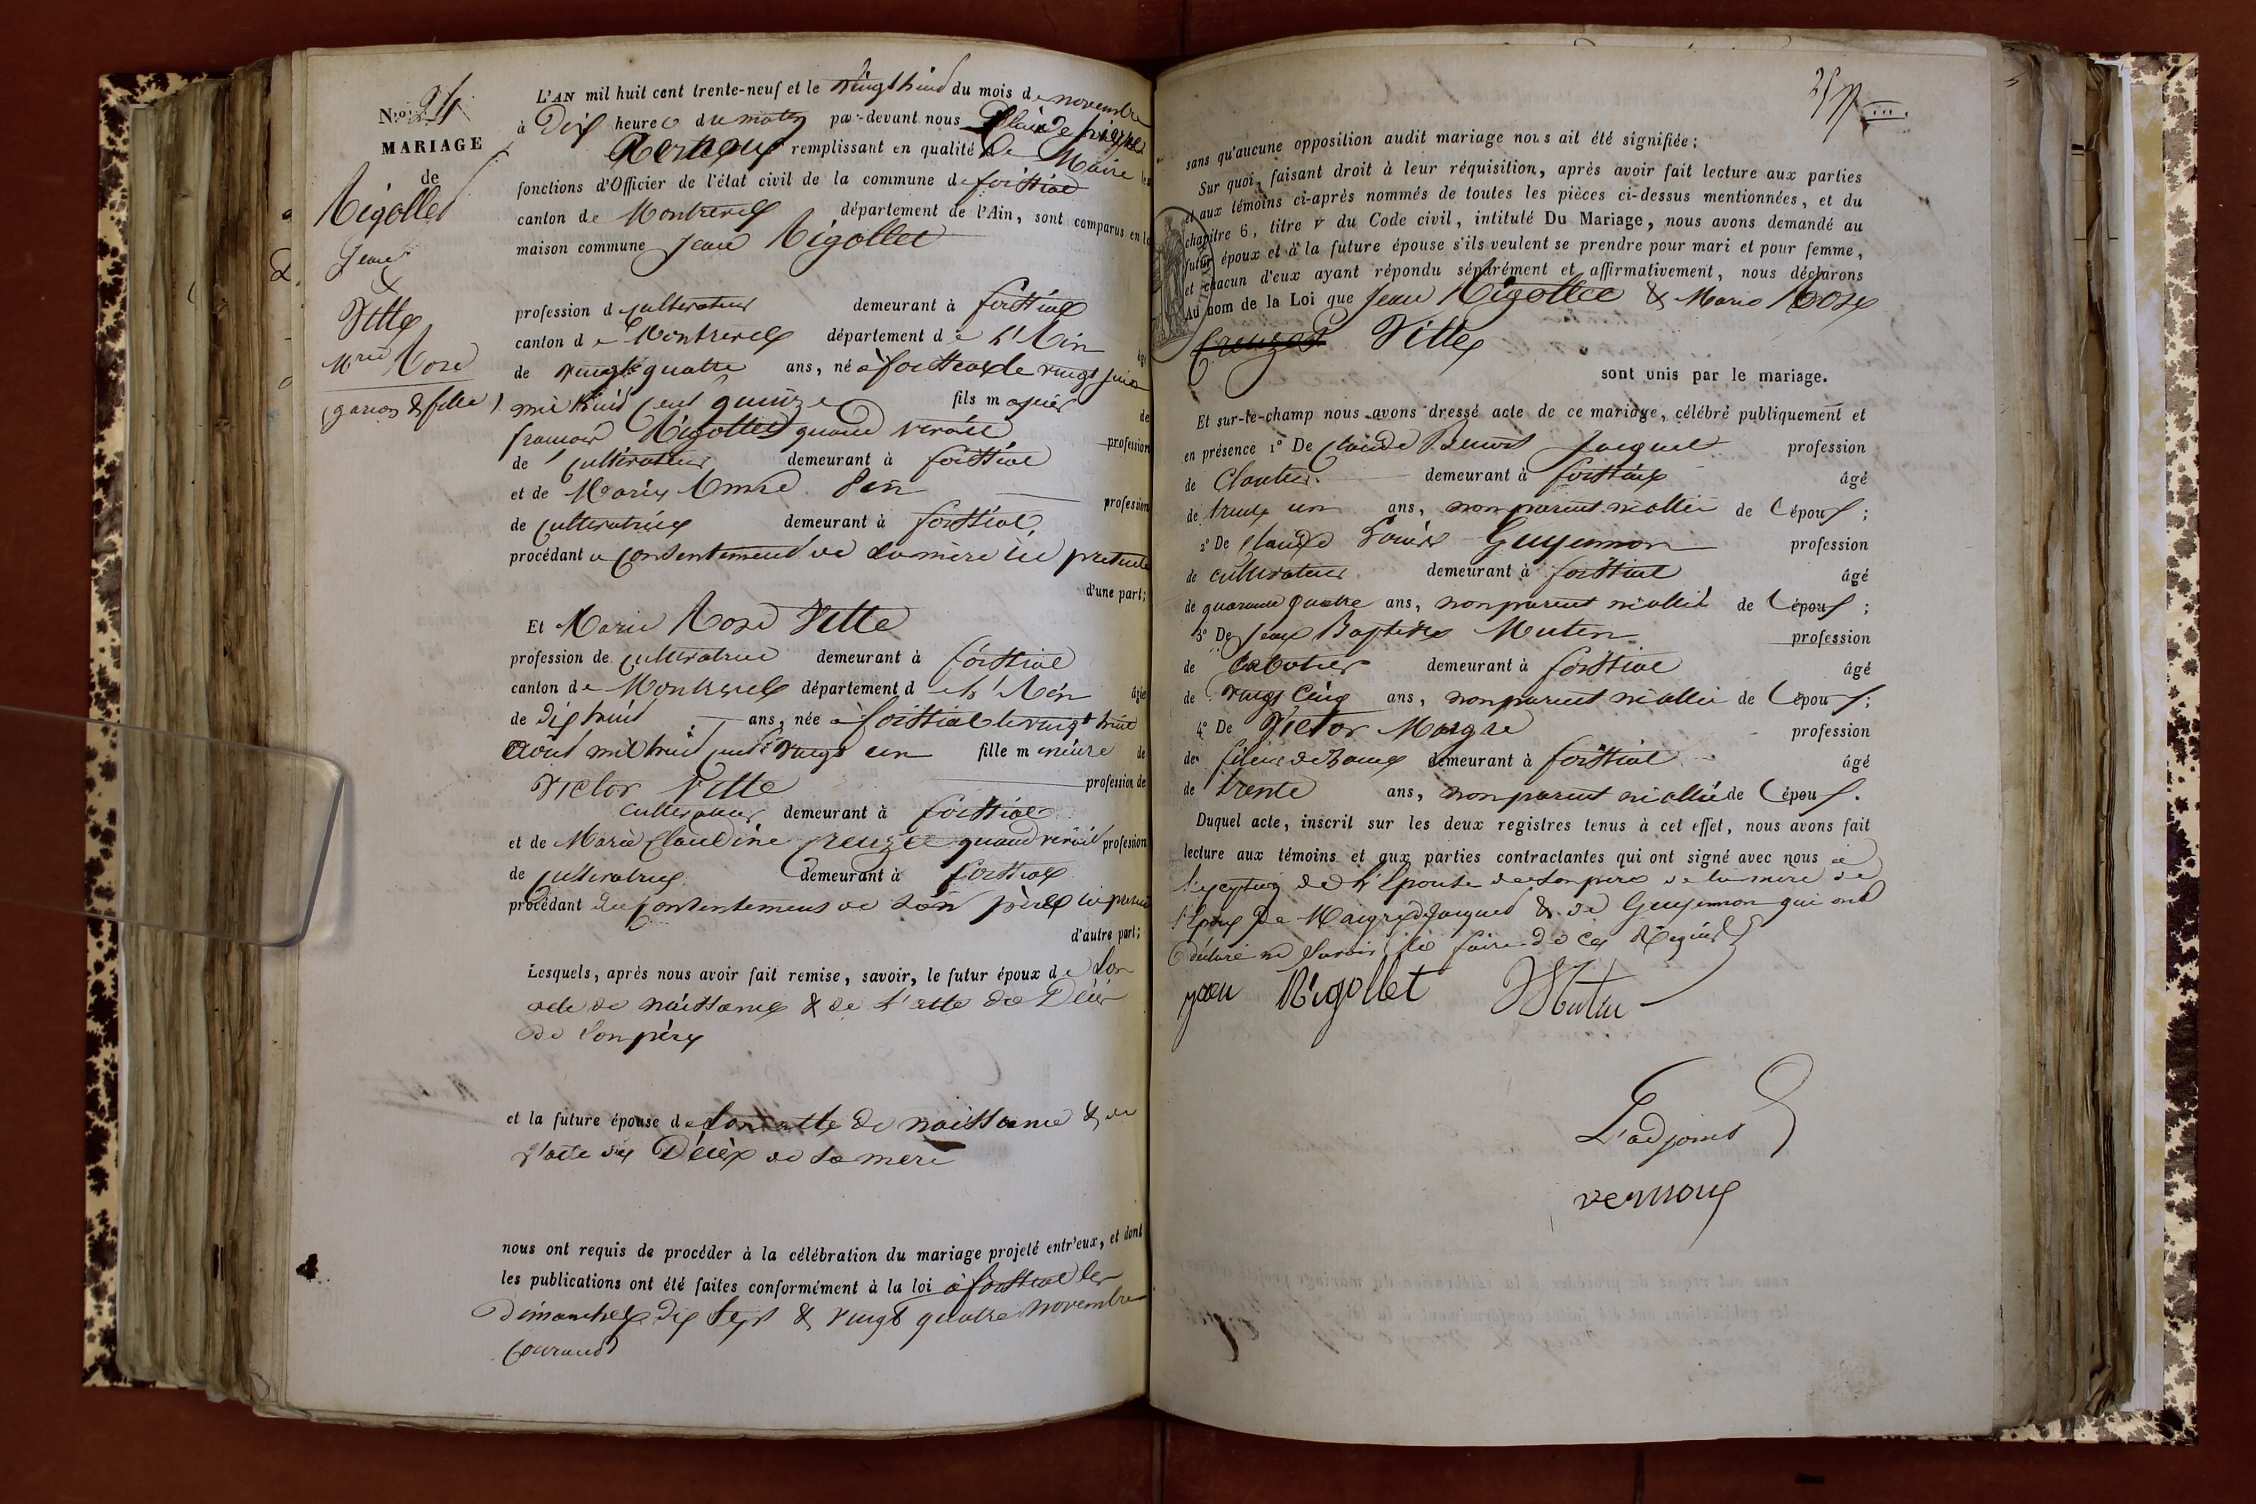 No 24
MARIAGE
de
Rigollet
Jean
&
Vitte
Mrie Rose
(garcon & fille)
L'AN mil huit cent trente-neuf et le vingt huit du mois de novembre
à Dix heures du matin par-devant nous
remplissant en qualité de Maire les
fonctions d'Officier de l'état civil de la commune de foissiat
canton de Montrevel département de l'Ain, sont comparus en la
maison commune Jean Rigollet
profession de cultivateur demeurant à foissiat
canton de Montrevel département de l'Ain âgé
de vingt quatre ans, né à foissiat le vingt juin
mil huit cent quinze fils majeur de
francois Rigollet quand vivait profession
de cultivateur demeurant à foissiat
et de Marie profession
de cultivatrice demeurant à foissiat
procédant du consentement de sa mère ici présente
d'une part;
Et Marie Rose Vitte
profession de cultivatrice demeurant à foissiat
canton de Montrevel département de l'Ain âgée
de dix huit ans, née à foissiat le vingt huit
aout mil huit cent vingt un fille mineure de
Victor Vitte profession de
cultivateur demeurant à foissiat
et de Marie Claudine Creuzet quand vivait profession
de cultivatrice demeurant à foissiat
procédant du consentement de son père ici présent
d'autre part;
Lesquels, après nous avoir fait remise, savoir, le futur époux de son
acte de naissance & de l'acte de Décès
de son père
et la future épouse de son acte de naissance & de
l'acte de Décès de sa mère
nous ont requis de procéder à la célébration du mariage projeté entr'eux, et dont
les publications ont été faites conformément à la loi à foissiat les
Dimanches dix sept & vingt quatre novembre
courant
sans qu'aucune opposition audit mariage nous ait été signifiée;
Sur quoi, faisant droit à leur réquisition, après avoir fait lecture aux parties
et aux témoins ci-après nommés de toutes les pièces ci-dessus mentionnées, et du
chapitre 6, titre v du Code civil, intitulé Du Mariage, nous avons demandé au
futur époux et à la future épouse s'ils veulent se prendre pour mari et pour femme,
et chacun d'eux ayant répondu séparément et affirmativement, nous déclarons
Au nom de la Loi que Jean Rigollet & Marie Rose
Creuzet Vitte
sont unis par le mariage.
Et sur-le-champ nous avons dressé acte de ce mariage, célébré publiquement et
en présence 1° De Claude Benoit Jacquet profession
de Cloutier demeurant à foissiat âgé
de trente un ans, non parent ni allié de l'époux;
2° De Claude Louis Guyennon profession
de cultivateur demeurant à foissiat âgé
de quarante quatre ans, non parent ni allié de l'époux;
3° De Jean Baptiste Mutin profession
de sabotier demeurant à foissiat âgé
de vingt cinq ans, non parent ni allié de l'époux;
4° De Victor Maigre profession
de demeurant à foissiat âgé
de trente ans, non parent ni allié de l'époux.
Duquel acte, inscrit sur les deux registres tenus à cet effet, nous avons fait
lecture aux témoins et aux parties contractantes qui ont signé avec nous à
l'exception de l'Epouse de son père de la mère de
l'Epoux de Maigre de Jacquet & de Guyennon qui ont
déclaré ne savoir le faire de ce Requis
jean Rigollet Mutin
L'adjoint
vernoux